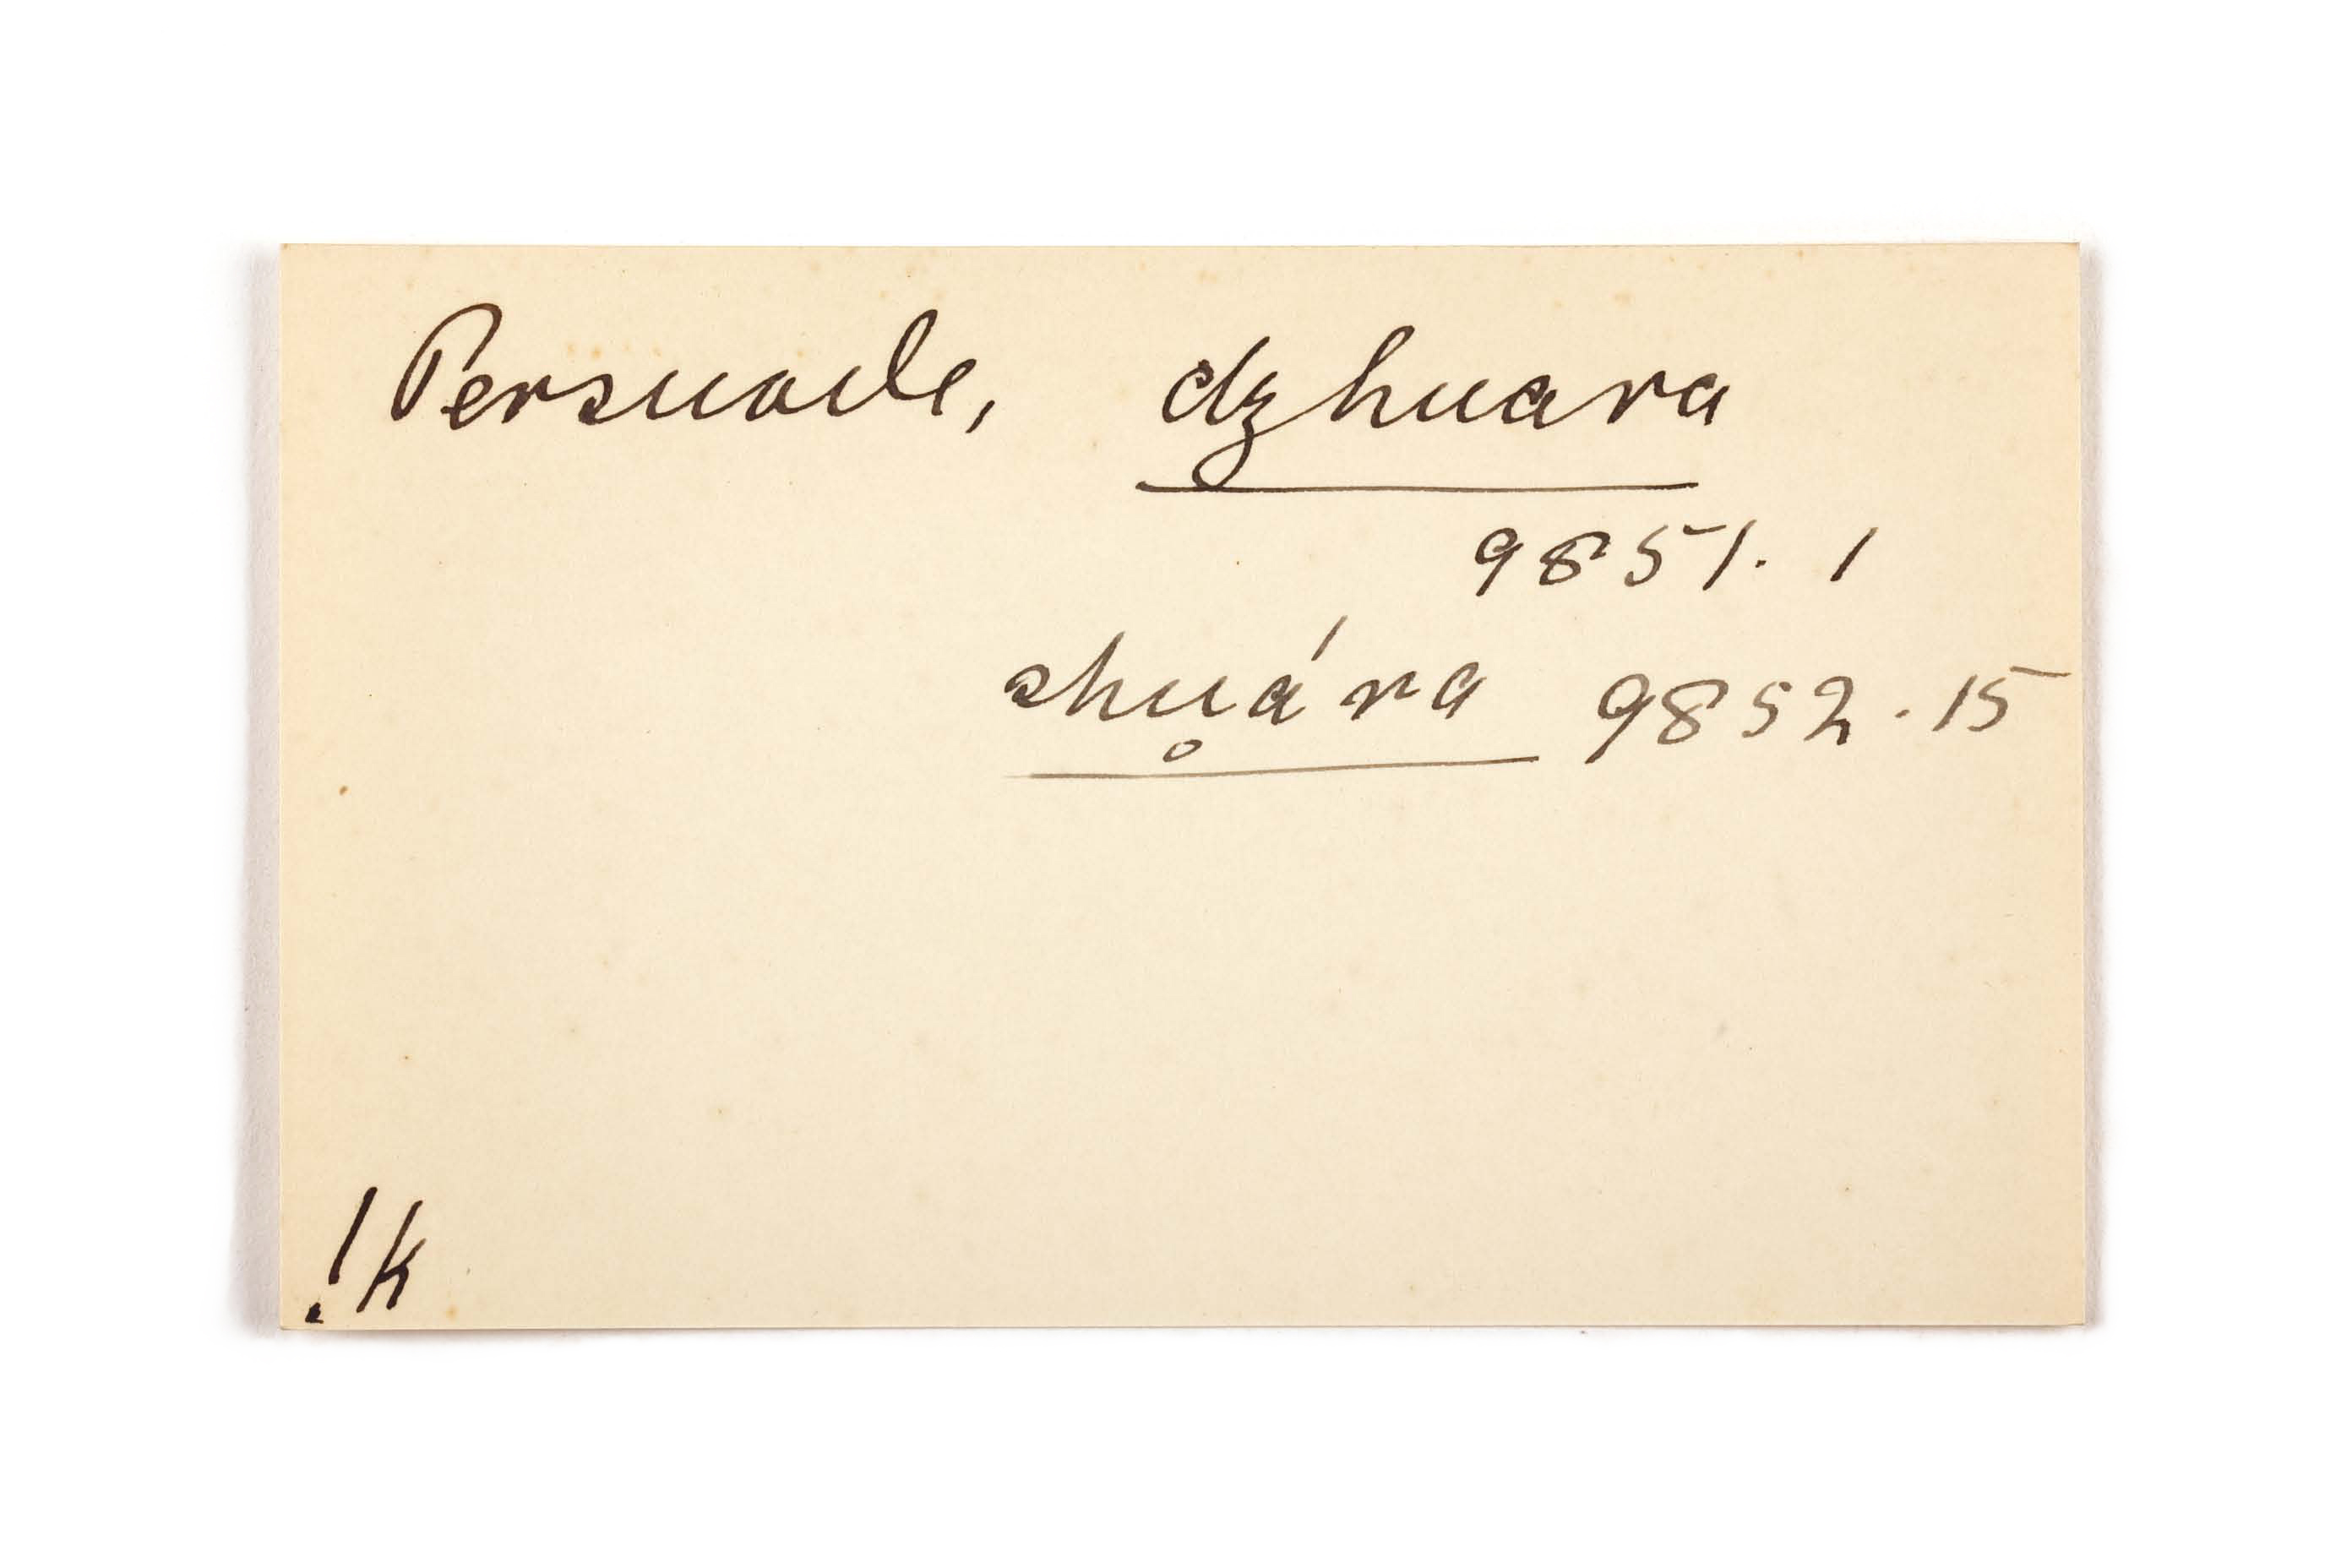 Persuade, dzhuara
9851. 1
shu̥ára 9852. 15
!k